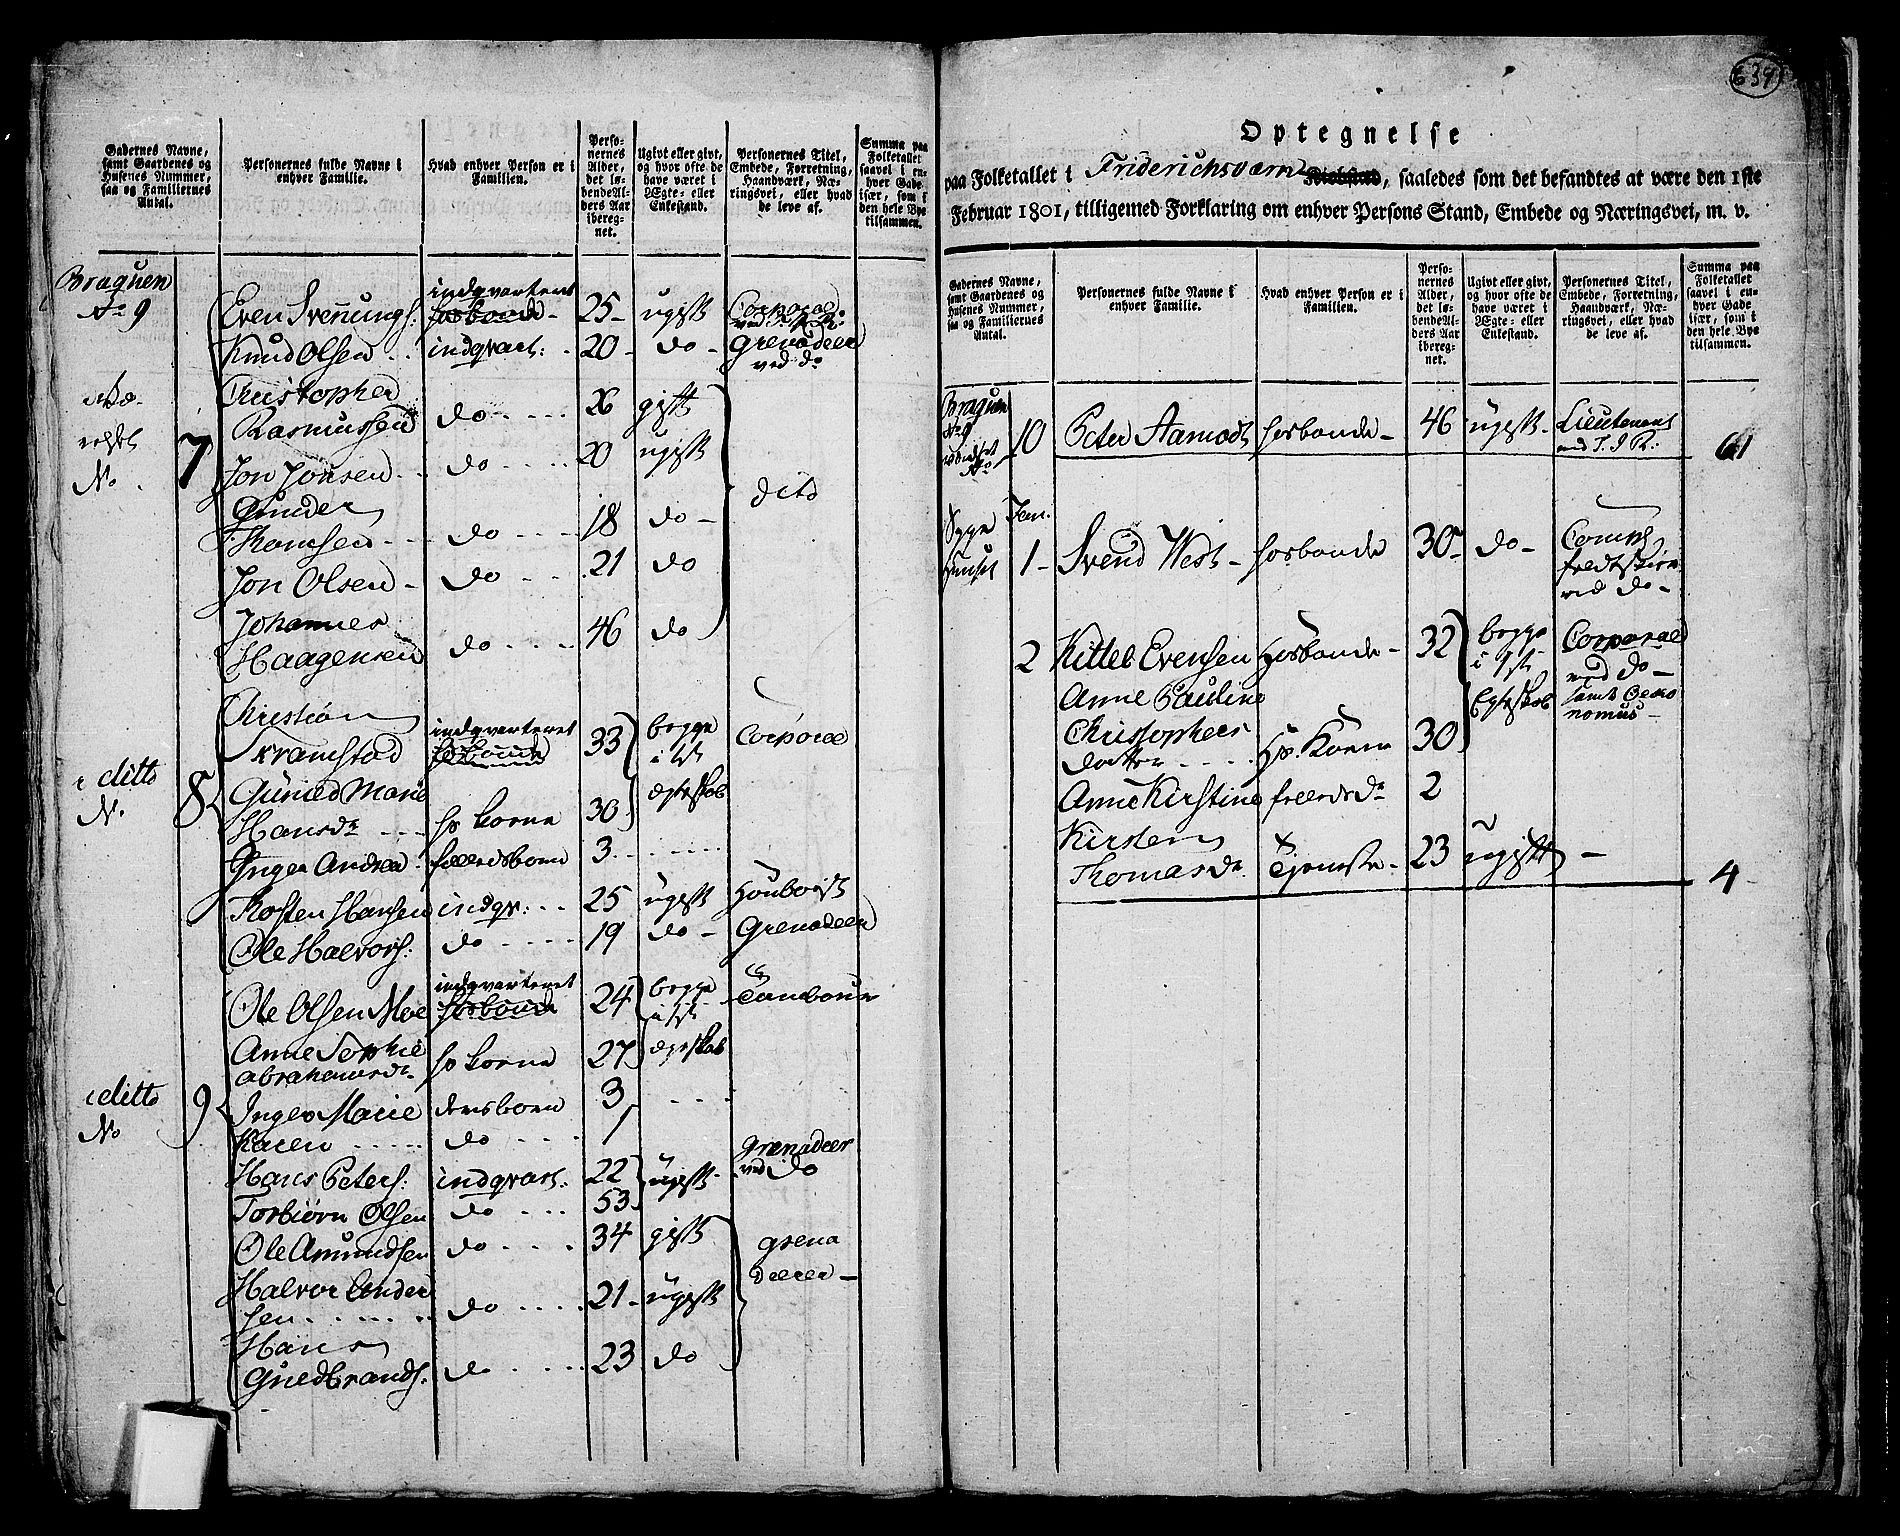 Gadernes Navne,
samt Gaardenes og
Husenes Nummer,
saa og Familiernes
Antal.
Personernes fulde Navne i
enhver Familie.
Hvad enhver Person er i
Familien.
Perso-
nernes
Alder,
det lø-
bende Al-
ders Aar
ibereg-
net.
Ugivt eller givt,
og hvor ofte de
have været i
Ægte- eller
Enkestand.
Personernes Titel,
Embede, Forretning,
Haandværk, Næ-
ringsvei, eller hvad
de leve af.
Summa paa
Folketallet
saavel i en-
hver Gade
især, som i
den hele Bye
tilsammen.
Braquen
No 9
Even Svennungs: indqvarteret Hosbonde - 25 - ugift Corporal
Knud Olsen - indqvart: - 20 - do - Grenadeer
ved do
No. 7
Christopher
Rasmussen do 26 gift
Jon Jonsen do 20 ugift
Gunder
Thomsen do 18 do - dito
Jon Olsen - do 21 do
Johannes
Haagensen do 46 do
ditto
No. 8
Christian
Skramstad indqvarteret Hosbonde 33 begge i 1st Corporal
Gunild Marie
Hansdr hs Kone 30 Egteskab
Inger Andrea fælledsbarn 3
Tosten Hansen indqv: 25 ugift Houboist
Ole Halvors: do 19 do - Grenadeer
ditto
No 9
Ole Olsen Moe indqvarteret Hosbonde 24 begge i 1st Tambour
Anne Sophie
Abrahamsdr hs Kone 27 egteskab
Inger Marie deresbarn 3
Karen do 1
Hans Peters: indqvart: 22 ugift Grenadeer
ved do
Torbiørn Olsen do 53
Ole Amundsen do 34 gift grena
deerer -
Halvor Ander
sen do 21 - ugift
Hans
Guldbrands: do 23 do
639
Optegnelse
paa Folketallet i Friderichsværn Kiøbsted, saaledes som det befandtes at være den 1ste
Februar 1801, tilligemed Forklaring om enhver Persons Stand, Embede og Næringsvei, m. v.
Gadernes Navne,
samt Gaardenes og
Husenes Nummer,
saa og Familiernes
Antal.
Personernes fulde Navne i
enhver Familie.
Hvad enhver Person er i
Familien.
Perso-
nernes
Alder,
det lø-
bende Al-
ders Aar
ibereg-
net.
Ugivt eller givt,
og hvor ofte de
have været i
Ægte- eller
Enkestand.
Personernes Titel,
Embede, Forretning,
Haandværk, Næ-
ringsvei, eller hvad
de leve af.
Summa paa
Folketallet
saavel i en-
hver Gade
især, som i
den hele Bye
tilsammen.
Braquen
No 9
10 Peter Aamodt Hosbonde - 46 ugift - Lieutenant 61
Syge
Huuset
Fam.
1 - Svend West - Hosbonde 30 - do -
ved do -
2 Kittel Evensen Hosbonde - 32 begge
i 1st
Egteskab
Corporal
ved do -
samt Oeko
nomus -
Anne Pauline
Christophers
datter Hs. Kone 30
Anne Kirstine fælledsdr 2
Kirsten
Thomasdr Tjeneste - 23 ugift - 4